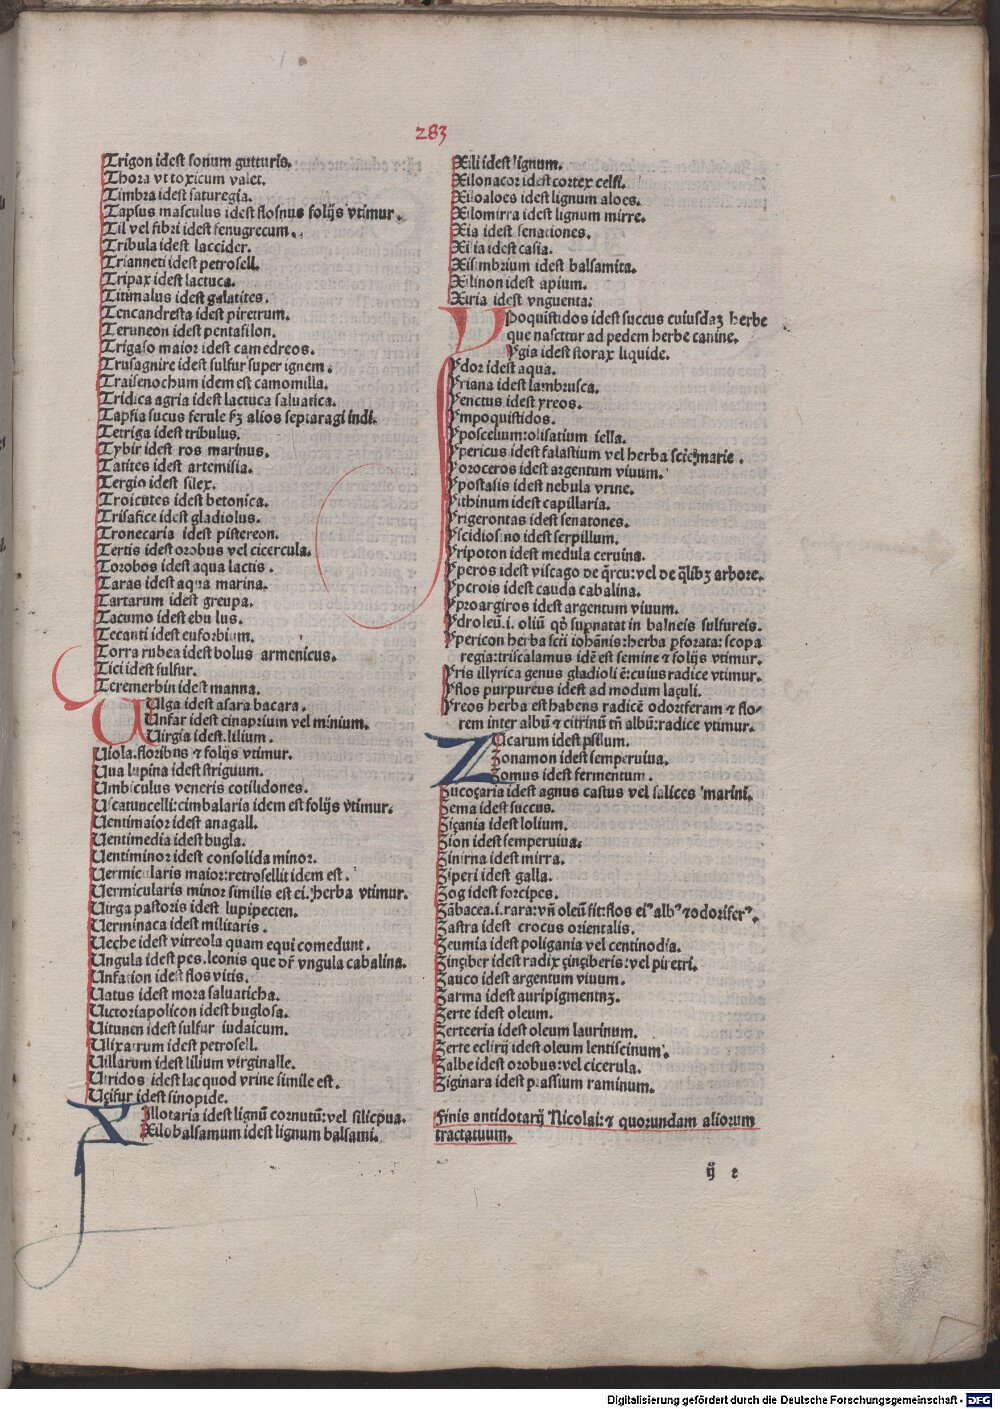 283
Trigon idest sonum gutturis.
Thora vt toxicum valet.
Timbra idest saturegia.
Tapsus masculus idest flosnus folijs vtimur.
Til vel fibri idest fenugrecum.
Tribula idest laccider.
Trianneti idest petrosell.
Tripax idest lactuca.
Titimalus idest galatites.
Tencandresta idest piretrum.
Teruneon idest pentafilon.
Trigaso maior idest camedreos.
Trusagnire idest sulfur super ignem.
Traisenochum idem est camomilla.
Tridica agria idest lactuca saluatica.
Tapsia sucus ferule fꝫ alios septaragi indi.
Tetriga idest tribulus.
Tybir idest ros marinus.
Tatites idest artemisia.
Tergio idest silex.
Troicutes idest betonica.
Trisafice idest gladiolus.
Tronecaria idest pistereon.
Tertis idest orobus vel cicercula.
Torobos idest aqua lactis.
Taras idest aqua marina.
Tartarum idest greupa.
Tacumo idest ebulus.
Tecanti idest euforbium.
Torra rubea idest bolus armenicus.
Tici idest sulfur.
Tcremerbin idest manna.
Ulga idest asara bacara.
Unfar idest cinaprium vel minium.
Uirgia idest.lilium.
Uiola.floribus ⁊ folijs vtimur.
Uua lupina idest striguum.
Umbiculus veneris cotilidones.
Uscatuncelli:cimbalaria idem est folijs vtimur.
Uentimaior idest anagall.
Uentimedia idest bugla.
Uentiminor idest consolida minor.
Uermicularis maior:retrosellit idem est.
Uermicularis minor similis est ei.herba vtimur.
Uirga pastoris idest lupipecten.
Uerminaca idest militaris.
Ueche idest vitreola quam equi comedunt.
Ungula idest pes.leonis que dr̄ vngula cabalina.
Unfation idest flos vitis.
Uatus idest mora saluaticha.
Uictoriapolicon idest buglosa.
Uitunen idest sulfur iudaicum.
Ulixarum idest petrosell.
Uillarum idest lilium virginalle.
Utridos idest lac quod vrine simile est.
Uçifur idest sinopide.
Xillotaria idest lignū cornutū:vel silicpua.
Xilobalsamum idest lignum balsami.
Xili idest lignum.
Xilonacor idest cortex celsi.
Xiloaloes idest lignum aloes.
Xilomirra idest lignum mirre.
Xia idest senationes.
Xilia idest casia.
Xisimbrium idest balsamita.
Xilinon idest apium.
Xiria idest vnguenta:
Ypoquistidos idest succus cuiusdaꝫ herbe
que nascitur ad pedem herbe canine.
Ygia idest storax liquide.
Ydor idest aqua.
Yriana idest lambrusca.
Yenctus idest yreos.
Ympoquistidos.
Yposcelium:olisatium iella.
Ypericus idest falastium vel herba sciē marie.
Yoroceros idest argentum viuum.
Ypostasis idest nebula vrine.
Yithinum idest capillaria.
Yrigerontas idest senatones.
Yscidiosino idest serpillum.
Yripoton idest medula ceruina.
Yperos idest viscago de q̄rcu:vel de q̄libꝫ arbore.
Yperois idest cauda cabalina.
Yproargiros idest argentum viuum.
Ydroleū.i. oliū qd̓ supnatat in balneis sulfureis.
Ypericon herba scti iohānis:herba pforata:scopa
regia:triscalamus idē est semine ⁊ folijs vtimur.
Yris illyrica genus gladioli ē:cuius radice vtimur.
Yflos purpureus idest ad modum laçuli.
Yreos herba est habens radicē odoriferam ⁊ flo-
rem inter albū ⁊ citrinū tn̄ albū:radice vtimur.
Zicarum idest psēlum.
Zonamon idest semperuiua.
Zomus idest fermentum.
Zucoçaria idest agnus castus vel salices marini.
Zema idest succus.
Ziçania idest lolium.
Zion idest semperuiua.
Zinirna idest mirra.
Ziperi idest galla.
Zog idest forcipes.
Zābacea.i.rara:vn̄ oleū fit:flos ei⁹ alb⁹ ⁊ odorifer⁹.
Zastra idest crocus orientalis.
Zeumia idest poligania vel centinodia.
Zinçiber idest radix çinçiberis:vel piretri.
Zauco idest argentum viuum.
Zarma idest auripigmentuꝫ.
Zerte idest oleum.
Zerteeria idest oleum laurinum.
Zerte eclirij idest oleum lentiscinum.
Zalbe idest orobus:vel cicerula.
Ziginara idest prassium raminum.
Finis antidotarij Nicolai:⁊ quorundam aliorum
tractatuum.
ij 2
Digitalisierung gefördert durch die Deutsche Forschungsgemeinschaft - DFG